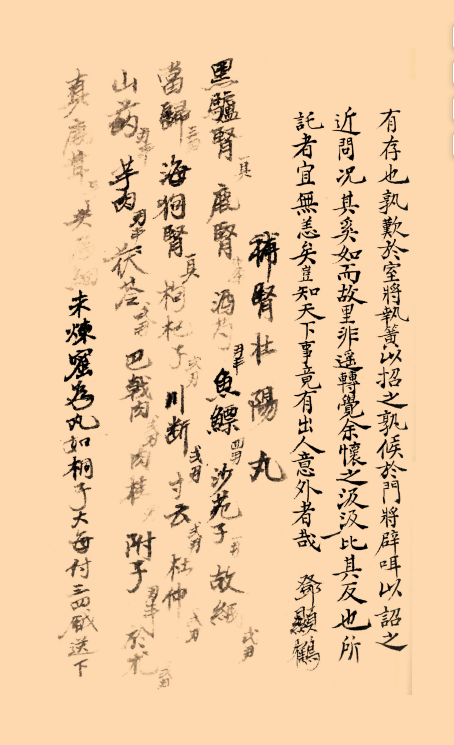 有存也孰歎於室將執簧以招之孰候於門將辟咡以詔之
近問況其奚如而故里非遥轉覺余懷之汲汲比其反也所
託者宜無恙矣豈知天下事竟有出人意外者哉 鄧顯鶴
補腎壯陽丸
黑驢腎一具 鹿腎 酒 魚鰾四刄 沙苑子 故紙弍刄
當歸 海狗腎一具 枸杞子弍刄 川斷弍刄 寸云弍刄 杜仲弍刄
山药 芋肉 茯苓 巴戟肉 肉桂 附子 於术
真鹿茸 未煉蜜為丸如桐子大每付三四錢送下